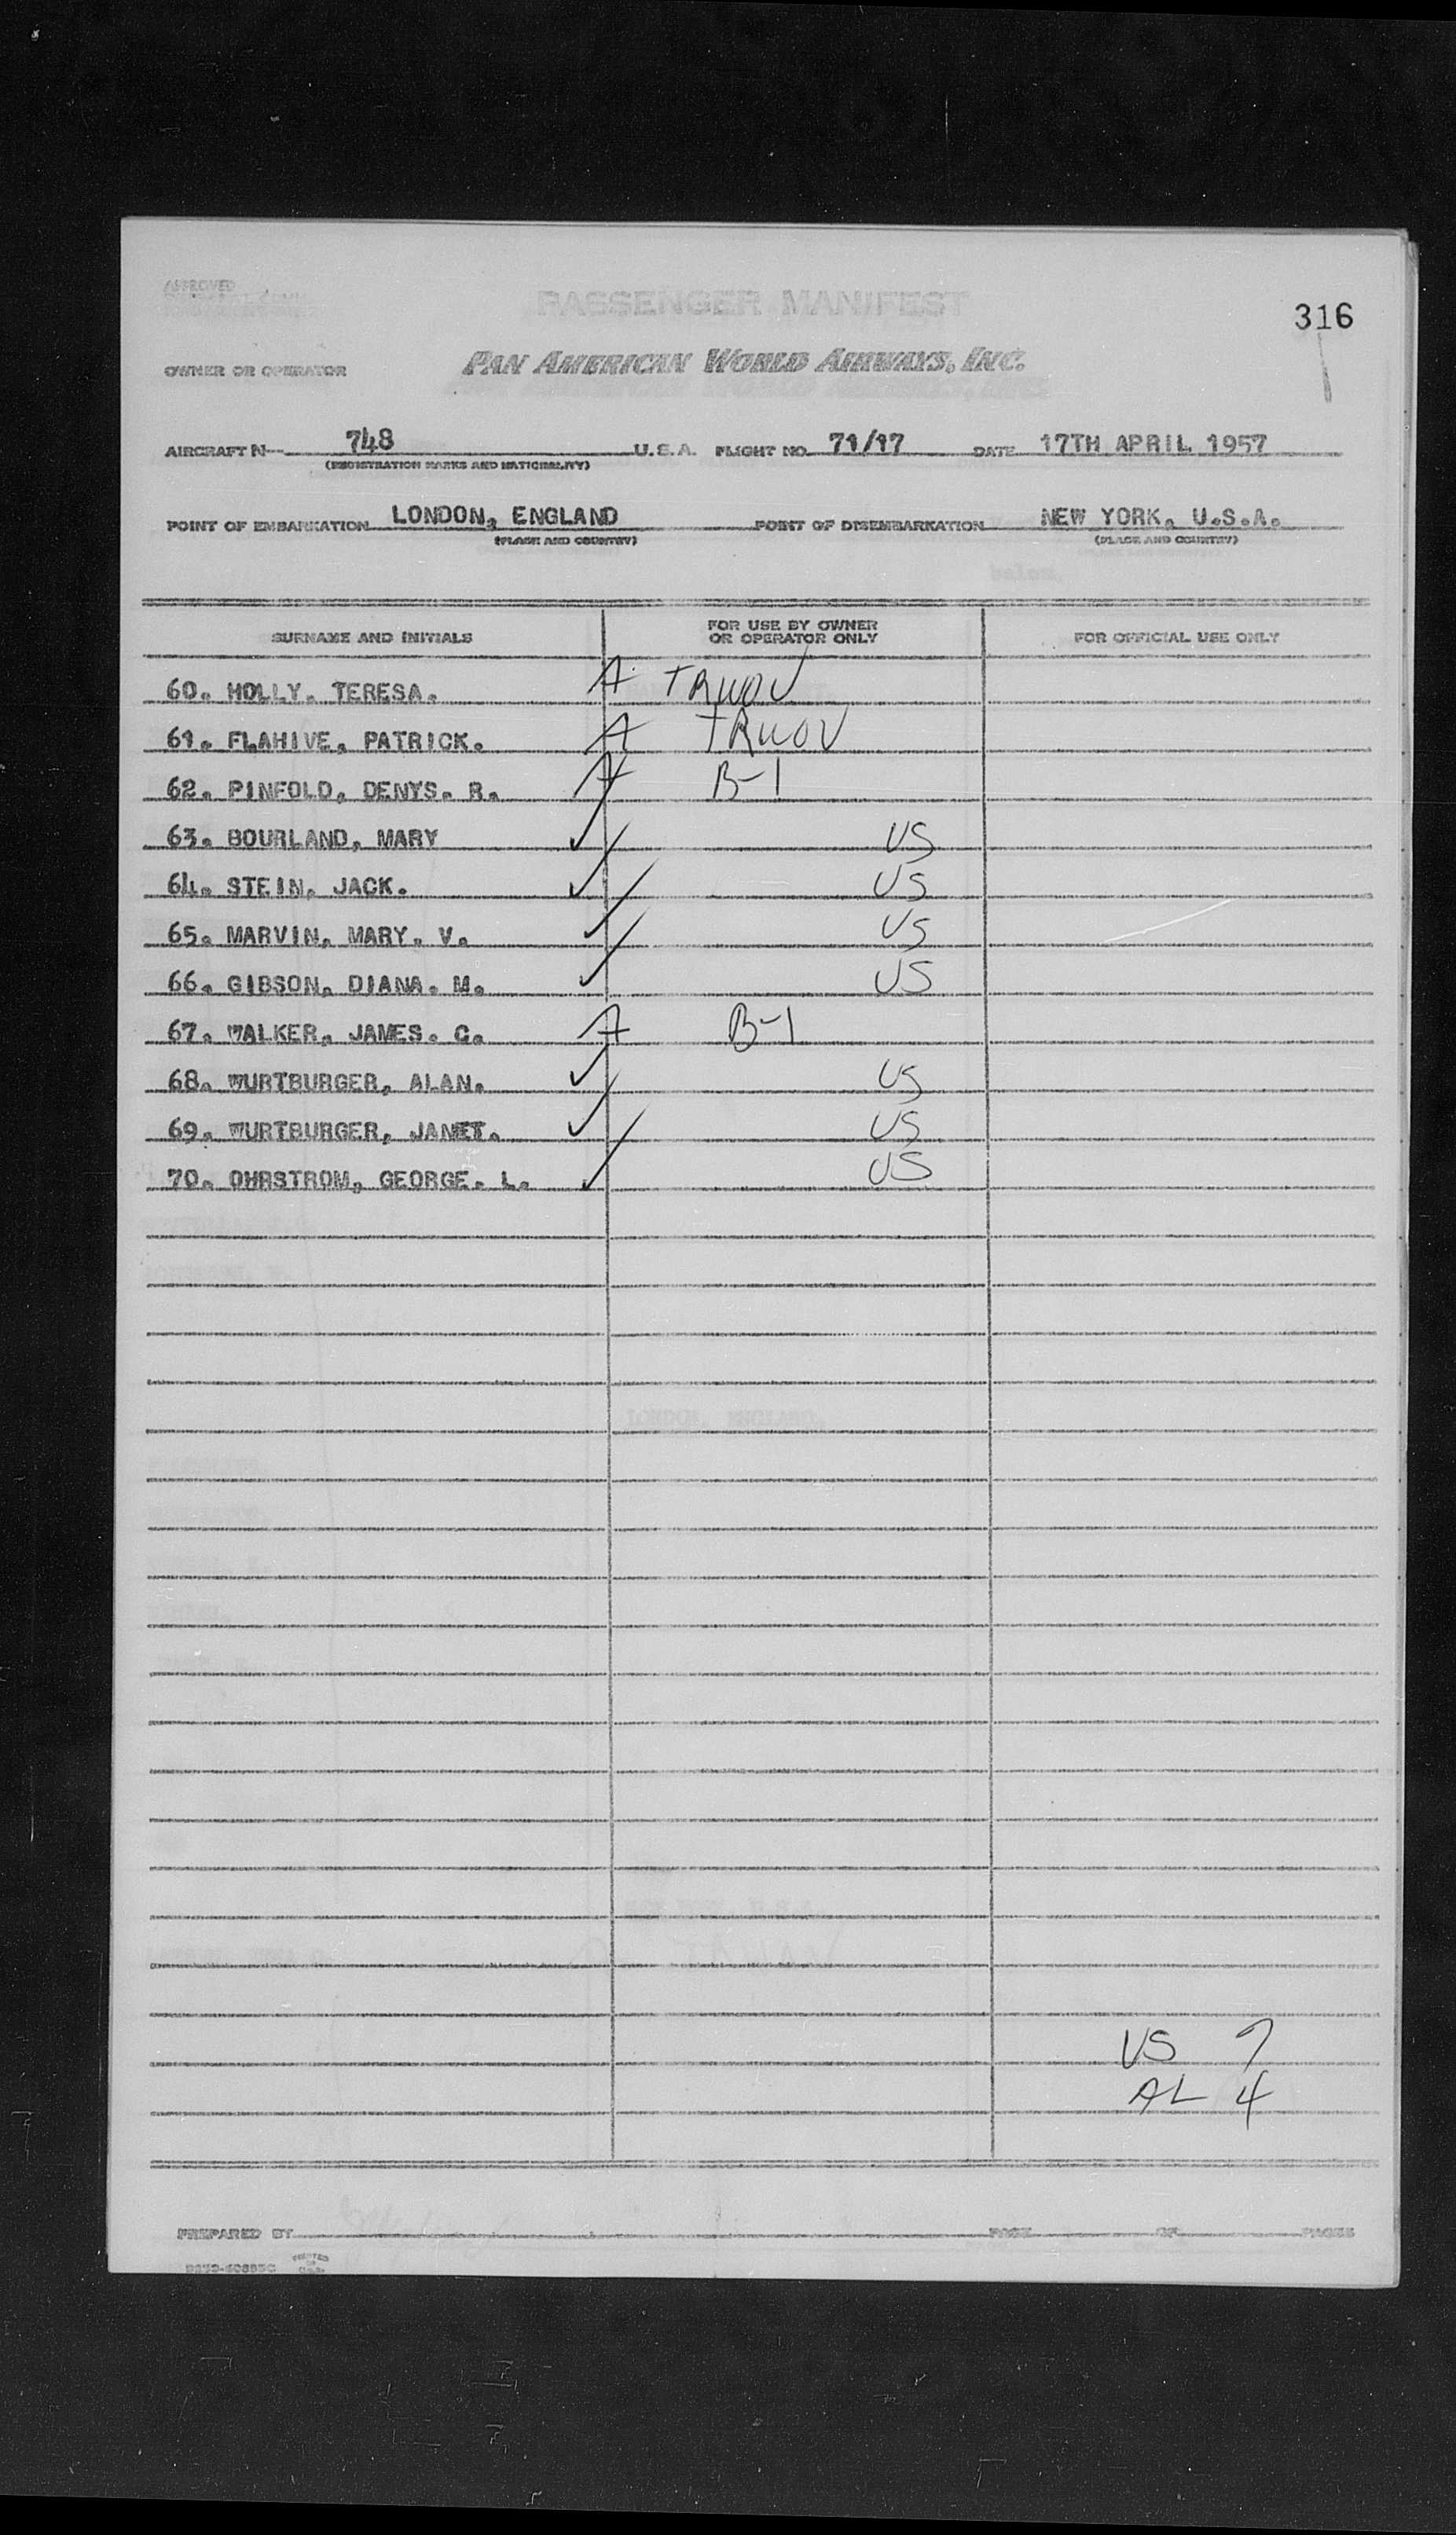 APPROVED
PASSENGER MANIFEST
316
OWNER OR OPERATOR PAN AMERICAN WORLD AIRWAYS, INC.
AIRCRAFT N- 748 U.S.A. FLIGHT NO. 71/17 DATE 17TH APRIL 1957
(REGISTRATION MARKS AND NATIONALITY)
POINT OF EMBARKATION LONDON, ENGLAND POINT OF DISEMBARKATION NEW YORK, U.S.A.
(PLACE AND COUNTRY) (PLACE AND COUNTRY)
SURNAME AND INITIALS FOR USE BY OWNER OR OPERATOR ONLY FOR OFFICIAL USE ONLY
60. HOLLY. TERESA. A TRWOV
61. FLAHIVE, PATRICK. A TRWOV
62. PINFOLD, DENYS. R. A B-1
63. BOURLAND, MARY ✓ US
64. STEIN, JACK. ✓ US
65. MARVIN, MARY. V. ✓ US
66. GIBSON, DIANA. M. ✓ US
67. WALKER, JAMES. C. A B-1
68. WURTBURGER, ALAN. ✓ US
69. WURTBURGER, JANET. ✓ US
70. OHRSTROM, GEORGE. L. ✓ US
US 7
AL 4
PREPARED BY PAGE OF PAGES
PRINTED IN U.S.A.